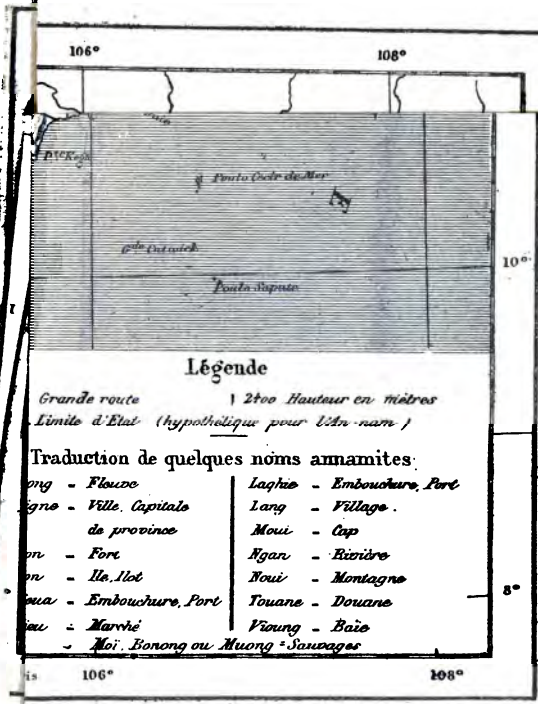 106° 108°
Poulo Cecir de Mer
E
Gde Catwick
10°
Poulo Sapate
Légende
Grande route 2400 Hauteur en mètres
Limite d'Etat (hypothétique pour l'An-nam)
Traduction de quelques noms annamites
ong = Fleuve
igne = Ville, Capitale
de province
on = Fort
on = Ile, Ilot
oua = Embouchure, Port
ieu = Marché
Laghie = Embouchure, Port
Lang = Village.
Moui = Cap
Ngan = Rivière
Noui = Montagne
Touane = Douane
Vioung = Baïe
= Moï, Bonong ou Muong = Sauvages
8°
is 106° 108°